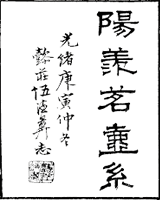 陽羨茗壺系
光緒庚寅仲冬
懿莊伍德彝志